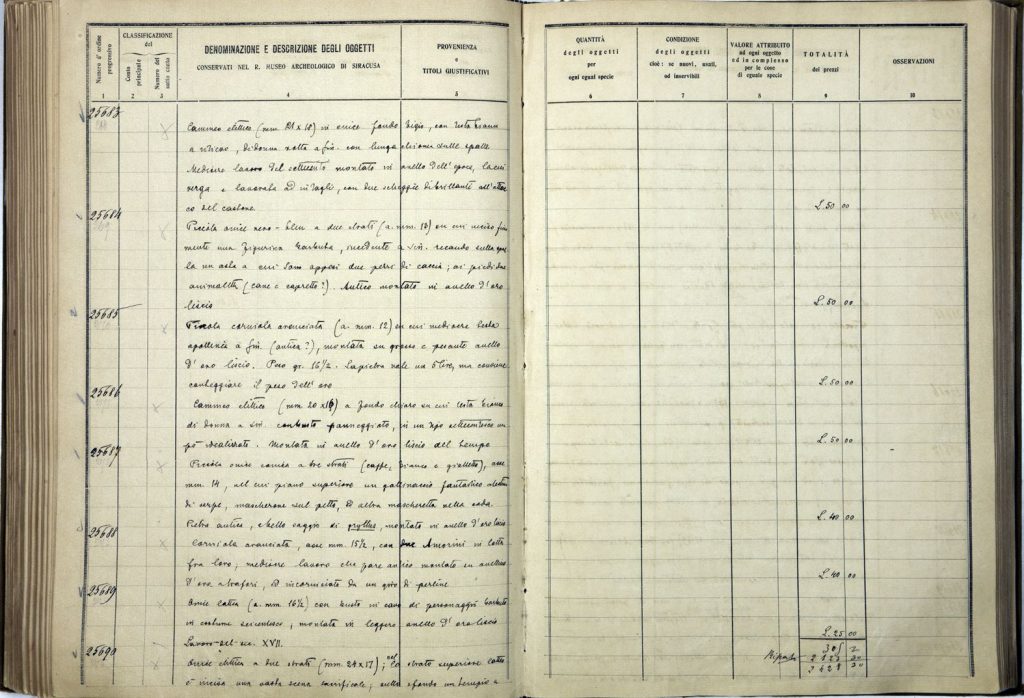 Numero d'ordine progressivo
CLASSIFICAZIONE del
Conto principale
Numero del sotto conto
DENOMINAZIONE E DESCRIZIONE DEGLI OGGETTI
CONSERVATI NEL R. MUSEO ARCHEOLOGICO DI SIRACUSA
PROVENIENZA
e
TITOLI GIUSTIFICATIVI
1 2 3 4 5
25683
Cammeo elittico (mm. 21 x 18) in onice fondo bigio, con testa bianca
a rilievo, di donna volta a sin. con lunga chioma sulle spalle
Mediocre lavoro del settecento montato in anello dell'epoca, la cui
verga è lavorata ad intagli, con due scheggie di brillante all'attac
co del castone
25684
Piccola onice nero-bleu a due strati (a. mm. 13) su cui inciso fine
mente una figurina barbuta, incedente a sin. recando sulla spal
la un asta a cui sono appesi due pezzi di caccia; ai piedi due
animaletti (cane e capretto?). Antico montato in anello d'oro
liscio
25685
Piccola corniola aranciata (a. mm. 12) su cui mediocre testa
apollinea a sin. (antica?), montata su grosso e pesante anello
d'oro liscio. Peso gr. 16½. La pietra vale un 5 lire, ma conviene
conteggiare il peso dell'oro
25686
Cammeo elittico (mm. 20 x 16) a fondo chiaro su cui testa bianca
di donna a sin. con busto panneggiato, in un tipo settecentesco un
pò idealizzato. Montata in anello d'oro liscio del tempo
25687
Piccola onice conica a tre strati (caffe, bianco e gialletto), asse
mm. 14, nel cui piano superiore un gallinaccio fantastico
di serpe, mascherone sul petto, ed altra mascheretta nella coda.
Pietra antica, e bello saggio di gryllus, montato in anello d'oro liscio
25688
Corniola aranciata, asse mm. 15½, con due Amorini in lotta
fra loro; mediocre lavoro che pare antico montato su anellino
d'oro a trafori, ed incorniciato da un giro di perline
25689
Onice lattea (a. mm. 16½) con busto in cavo di personaggio barbuto
in costume seicentesco, montata in leggero anello d'oro liscio
Lavoro del sec. XVII.
25690
Onice elittica a due strati (mm. 24 x 17); nel lo strato superiore latteo
è incisa una scena sacrificale; sullo sfondo un tempio a
QUANTITÀ
degli oggetti
per
ogni egual specie
CONDIZIONE
degli oggetti
cioè: se nuovi, usati,
od inservibili
VALORE ATTRIBUITO
ad ogni oggetto
ed in complesso
per le cose
di eguale specie
TOTALITÀ
dei prezzi
OSSERVAZIONI
6 7 8 9 10
L. 50 00
L. 50 00
L. 50 00
L. 50 00
L. 40 00
L. 40 00
L. 25 00
305
Riporto 2123 30
2428 30